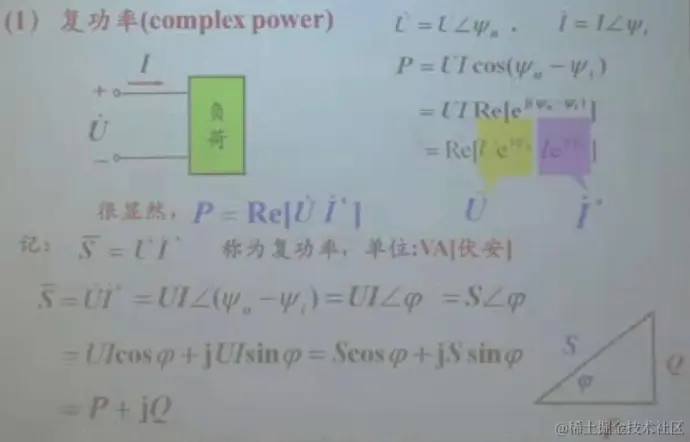 (1) 复功率(complex power)
U̇ = U∠ψu , İ = I∠ψi
İ
+
负荷
U̇
−
P = UI cos(ψu − ψi)
= UI Re[e^j(ψu−ψi)]
= Re[Ue^jψu Ie^−jψi]
U̇ İ*
很显然, P = Re[U̇ İ*]
记: S̅ = U̇İ* 称为复功率, 单位:VA[伏安]
S̅ = U̇İ* = UI∠(ψu − ψi) = UI∠φ = S∠φ
= UIcosφ + jUIsinφ = Scosφ + jSsinφ
= P + jQ
S
Q
φ
@稀土掘金技术社区